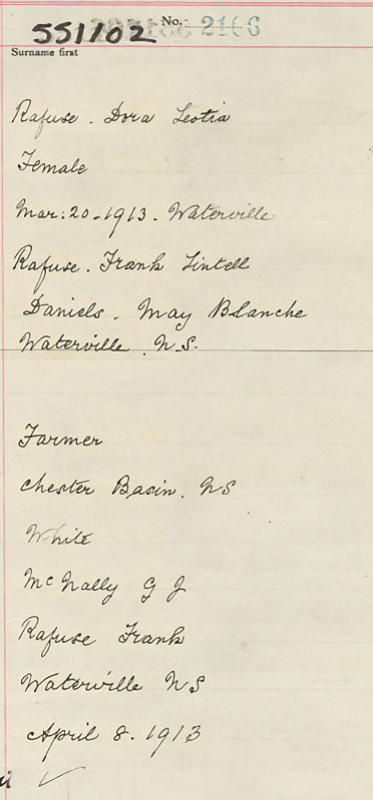 551102
No. 2166
Surname first
Rafuse. Dora Leotia
Female
Mar: 20-1913. Waterville
Rafuse. Frank Lintell
Daniels. May Blanche
Waterville. N.S.
Farmer
Chester Basin. NS
White
McNally G J
Rafuse Frank
Waterville NS
April 8. 1913